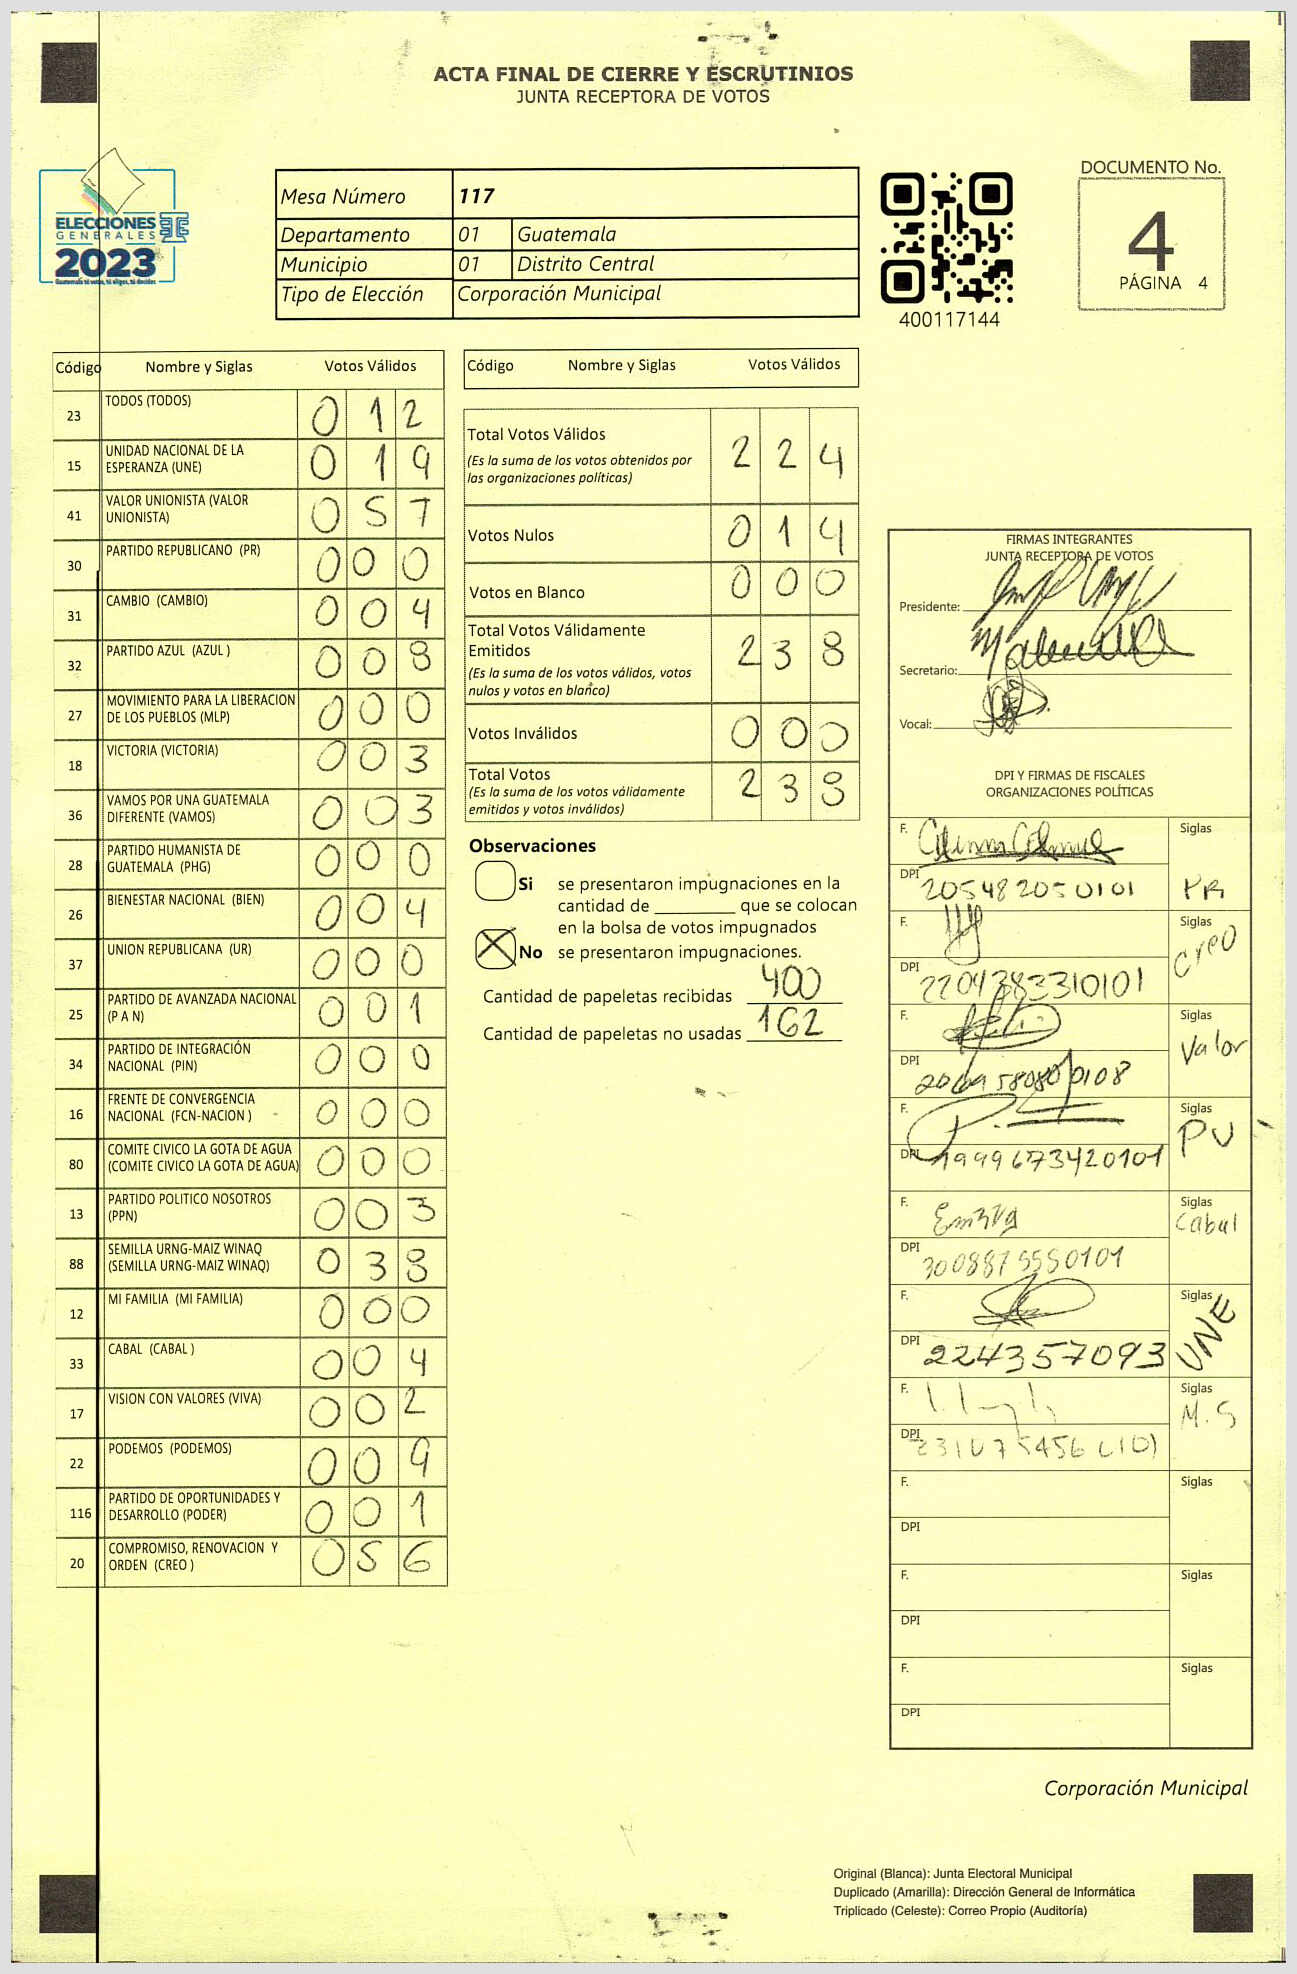 ACTA FINAL DE CIERRE Y ESCRUTINIOS
JUNTA RECEPTORA DE VOTOS
ELECCIONES
GENERALES
2023
Guatemala tú votas, tú eliges, tú decides
Mesa Número 117
Departamento 01 Guatemala
Municipio 01 Distrito Central
Tipo de Elección Corporación Municipal
400117144
DOCUMENTO No.
4
PÁGINA 4
Código Nombre y Siglas Votos Válidos
23 TODOS (TODOS) 0 1 2
15 UNIDAD NACIONAL DE LA ESPERANZA (UNE) 0 1 9
41 VALOR UNIONISTA (VALOR UNIONISTA) 0 5 7
30 PARTIDO REPUBLICANO (PR) 0 0 0
31 CAMBIO (CAMBIO) 0 0 4
32 PARTIDO AZUL (AZUL ) 0 0 8
27 MOVIMIENTO PARA LA LIBERACION DE LOS PUEBLOS (MLP) 0 0 0
18 VICTORIA (VICTORIA) 0 0 3
36 VAMOS POR UNA GUATEMALA DIFERENTE (VAMOS) 0 0 3
28 PARTIDO HUMANISTA DE GUATEMALA (PHG) 0 0 0
26 BIENESTAR NACIONAL (BIEN) 0 0 4
37 UNION REPUBLICANA (UR) 0 0 0
25 PARTIDO DE AVANZADA NACIONAL (P A N) 0 0 1
34 PARTIDO DE INTEGRACIÓN NACIONAL (PIN) 0 0 0
16 FRENTE DE CONVERGENCIA NACIONAL (FCN-NACION ) 0 0 0
80 COMITE CIVICO LA GOTA DE AGUA (COMITE CIVICO LA GOTA DE AGUA) 0 0 0
13 PARTIDO POLITICO NOSOTROS (PPN) 0 0 3
88 SEMILLA URNG-MAIZ WINAQ (SEMILLA URNG-MAIZ WINAQ) 0 3 8
12 MI FAMILIA (MI FAMILIA) 0 0 0
33 CABAL (CABAL ) 0 0 4
17 VISION CON VALORES (VIVA) 0 0 2
22 PODEMOS (PODEMOS) 0 0 9
116 PARTIDO DE OPORTUNIDADES Y DESARROLLO (PODER) 0 0 1
20 COMPROMISO, RENOVACION Y ORDEN (CREO ) 0 5 6
Código Nombre y Siglas Votos Válidos
Total Votos Válidos 2 2 4
(Es la suma de los votos obtenidos por
las organizaciones políticas)
Votos Nulos 0 1 4
Votos en Blanco 0 0 0
Total Votos Válidamente
Emitidos 2 3 8
(Es la suma de los votos válidos, votos
nulos y votos en blanco)
Votos Inválidos 0 0 0
Total Votos 2 3 8
(Es la suma de los votos válidamente
emitidos y votos inválidos)
Observaciones
Si se presentaron impugnaciones en la
cantidad de ________ que se colocan
en la bolsa de votos impugnados
No se presentaron impugnaciones.
Cantidad de papeletas recibidas 400
Cantidad de papeletas no usadas 162
FIRMAS INTEGRANTES
JUNTA RECEPTORA DE VOTOS
Presidente:
Secretario:
Vocal:
DPI Y FIRMAS DE FISCALES
ORGANIZACIONES POLÍTICAS
F. Siglas
DPI 205482050101 PR
F. Siglas
DPI 2204383310101 Creo
F. Siglas
DPI Valor
F. Siglas
DPI 1999673420101 PU
F. Siglas
DPI Cabal
F. Siglas
DPI 224357093 UNE
F. Siglas
DPI M.S
F. Siglas
DPI
F. Siglas
DPI
F. Siglas
DPI
Corporación Municipal
Original (Blanca): Junta Electoral Municipal
Duplicado (Amarilla): Dirección General de Informática
Triplicado (Celeste): Correo Propio (Auditoría)